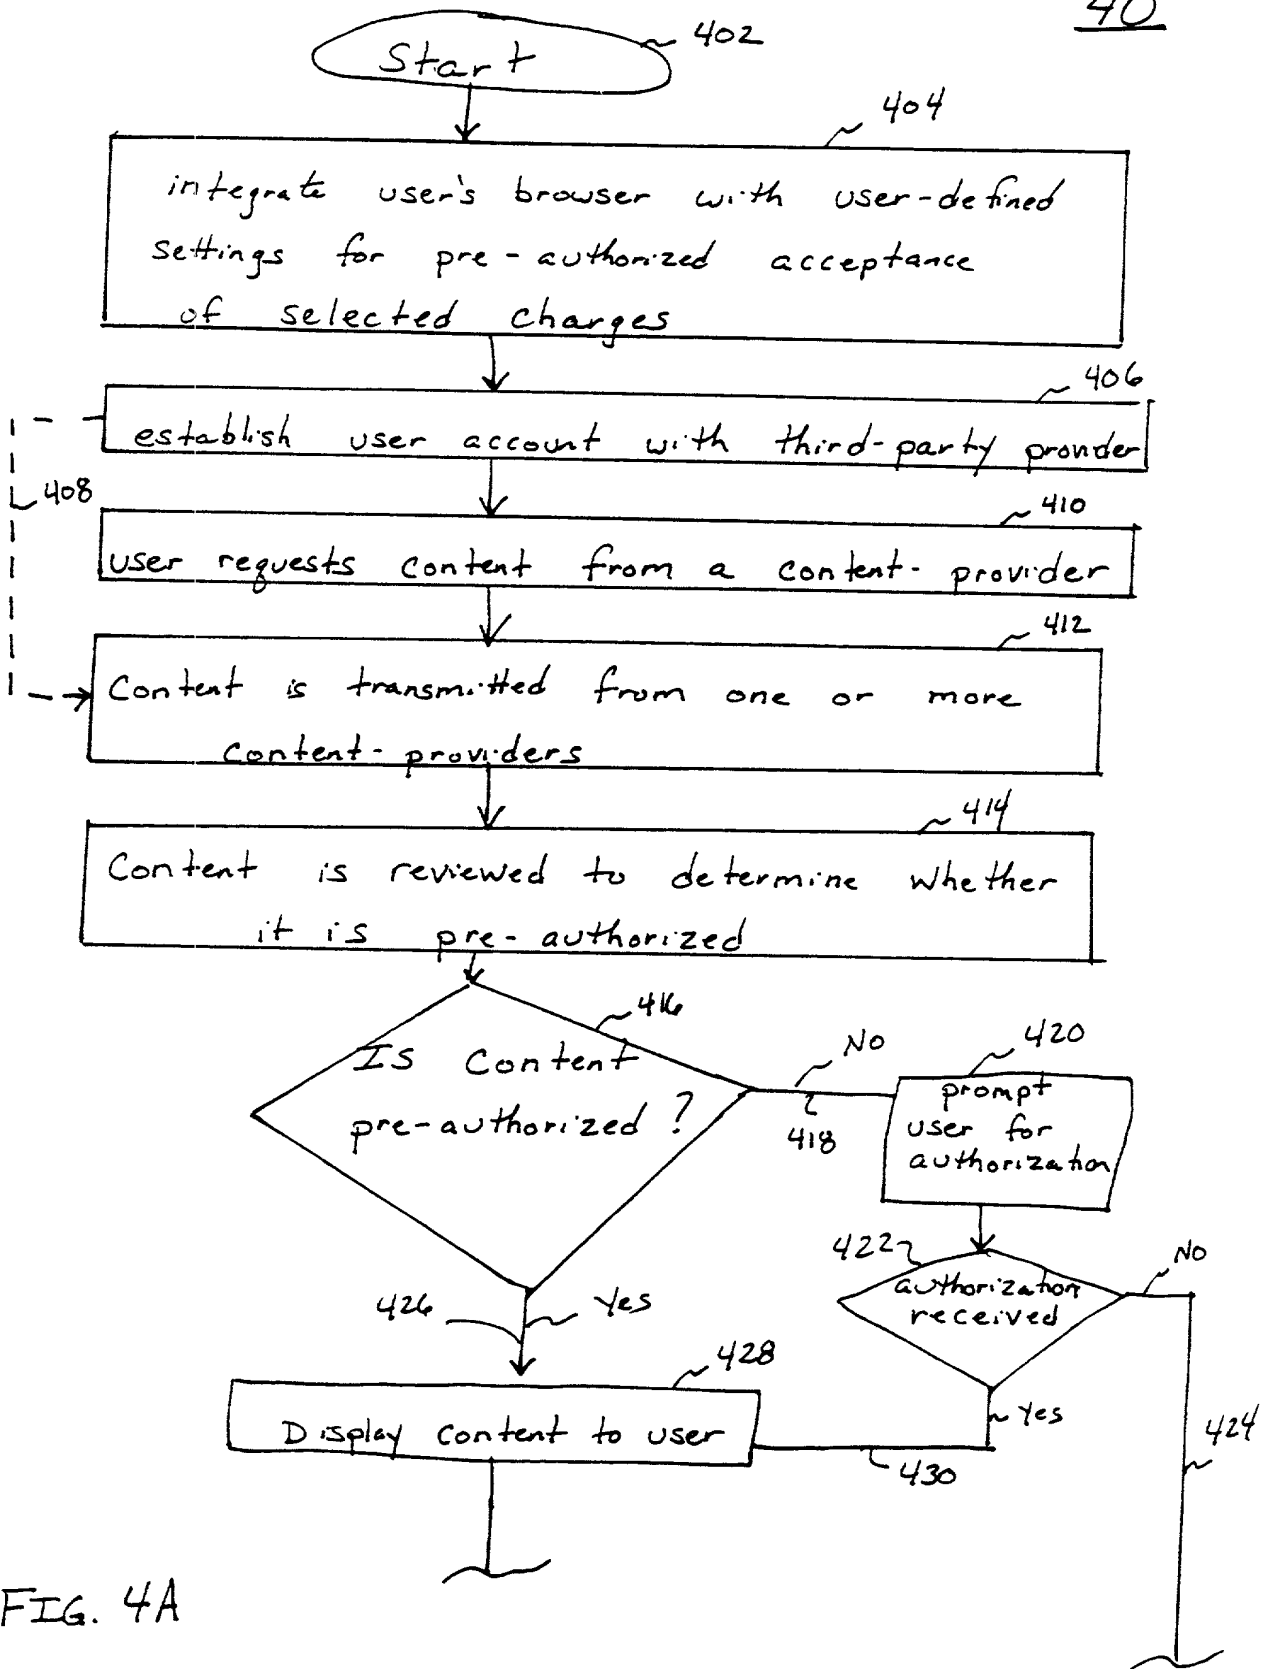 40
Start
402
404
integrate user's browser with user-defined
settings for pre-authorized acceptance
of selected charges
406
establish user account with third-party provider
408
410
user requests content from a content-provider
412
Content is transmitted from one or more
content-providers
414
Content is reviewed to determine whether
it is pre-authorized
416
Is Content
pre-authorized?
NO
418
420
prompt
user for
authorization
422
authorization
received
NO
424
426
Yes
428
Display content to user
Yes
430
FIG. 4A